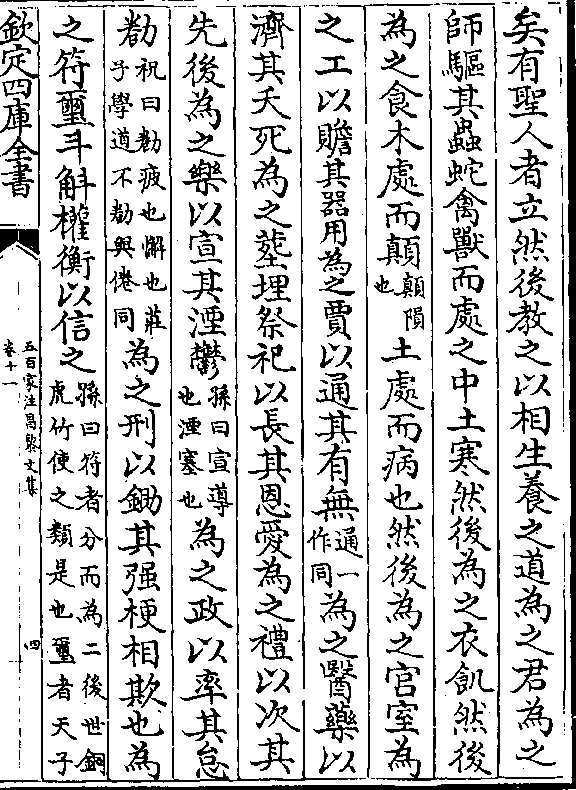 矣有聖人者立然後教之以相生養之道為之君為之
師驅其蟲蛇禽獸而處之中土寒然後為之衣飢然後
為之食木處而顛顛隕也土處而病也然後為之宮室為
之工以贍其器用為之賈以通其有無通一作同為之醫藥以
濟其夭死為之葬埋祭祀以長其恩愛為之禮以次其
先後為之樂以宣其湮鬱孫曰宣導也湮塞也為之政以率其怠
勌祝曰勌疲也懈也莊子學道不勌與倦同為之刑以鋤其强梗相欺也為
之符璽斗斛權衡以信之孫曰符者分而為二後世銅虎竹使之類是也璽者天子
欽定四庫全書
五百家注昌黎文集
卷十一
四